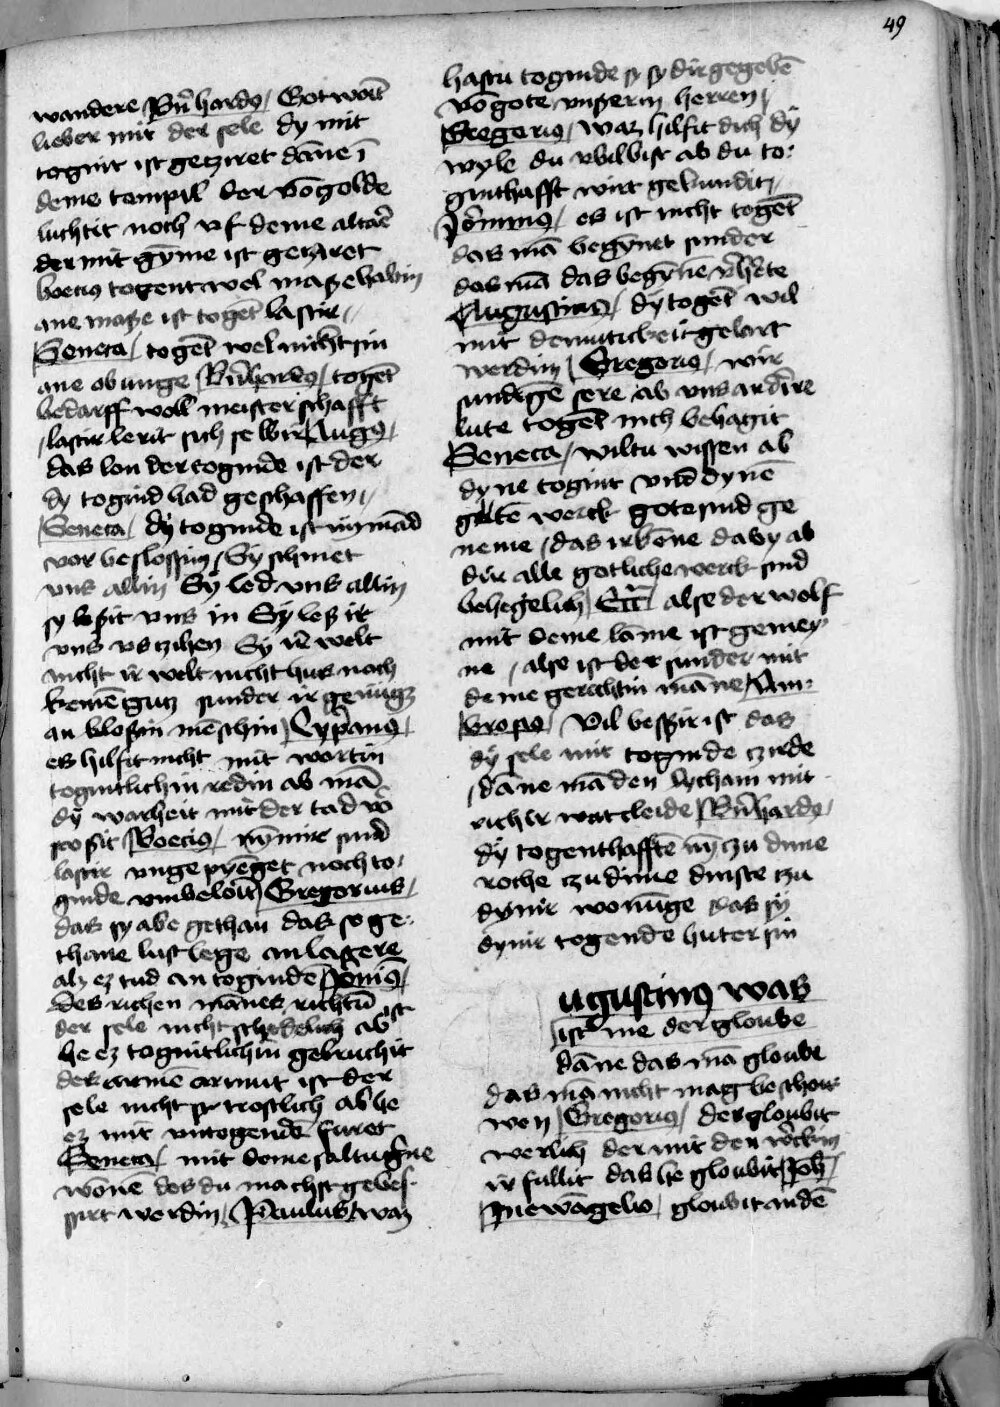 49
wandere Bn̄hardꝯ / Got wōt
lieber mit der sele dy mit
toguit ist getziret dāne ī
deme tempil der vō golde
luchtit noch vf deme altaē
der mit gȳme ist getziret
boecius togent wel maße haltin
ane maße ist togēt lastir /
Seneca / togēt wel nicht sin
ane obunge Bn̄hardꝯ / togēt
bedarff woll meisterschafft
/ lastir lerit sich selbir Augꝯ /
das lon der toginde ist der
dy togind had geschaffen /
Seneca / dy toginde ist nymād
vor beslossin / Sy schinet
vns allin Sy led vns allin
sy leßit vns in Sy leß it
vns vs czihen Sy ir welt
nicht ir welt nicht hus noch
keinē gutz sunder ir genugz
an bloßin mēschin / Cyprianꝯ /
es hilfit nicht mit wortin
togintlichin redin ab mā
dy warheit mit der tad v̄
Boecius / nȳmir sind
lastir vnge pyēget noch to /
ginde vmbelōit / Gregorius /
das sy abe gethan das so ge-
thane lust lege an lagere
alz ez tud an togindē Jeronimꝯ /
Des richen mānes richtū ist
der sele nicht schedelich ab
he ez togintlichin gebruchit
der armē armut ist der
sele nicht trostlich ab he
ez mit vntogende furet
Seneca / mit deme saltu
wonē des du machst gebes-
sirt werdin / Paulus / waz
hastu toginde sy sy dir gegebē
vō gote vnßerm herren /
Gregorius / waz hilfit dich dy
wyle du vbil bist ab du to-
ginthafft wirt gekundit /
Jeronimꝯ / es ist nicht togēt
das mā begȳnet sunder
das mā das begȳnē
Augustinus / dy togēt wil
mit demutickeit gelart
werdin / Gregorius / wir
sundigē sere ab vns andire
lute togēt nich behagit
Seneca / wiltu wissen ab
dyne togint vnd dynē
gutē werck gote sind ge
neme / das irkēne daby ab
dir alle gotliche werck sind
behegelich / alse der wolf
mit deme lāme ist gemey
ne / alse ist der sunder mit
deme gerechtin māne / Am-
brosꝯ / Vil beßir ist das
dy sele mit toginde czirde
/ dāne mā den lycham mit
richir wat cleide / Bn̄hardꝯ /
dy togenthafftē nȳ czu dime
roche czu dime dinste czu
dynir wonūge das sy
dynir togende huter sin
ugustinꝯ was
ist me der gloube
dāne das mā gloube
das mā nicht mag beschou
wen / Gregorius / der gloubit
werlich der mit den w̄ckin
ir fullit das he gloubit / Joh̄
In ewāgelio / gloubit andē